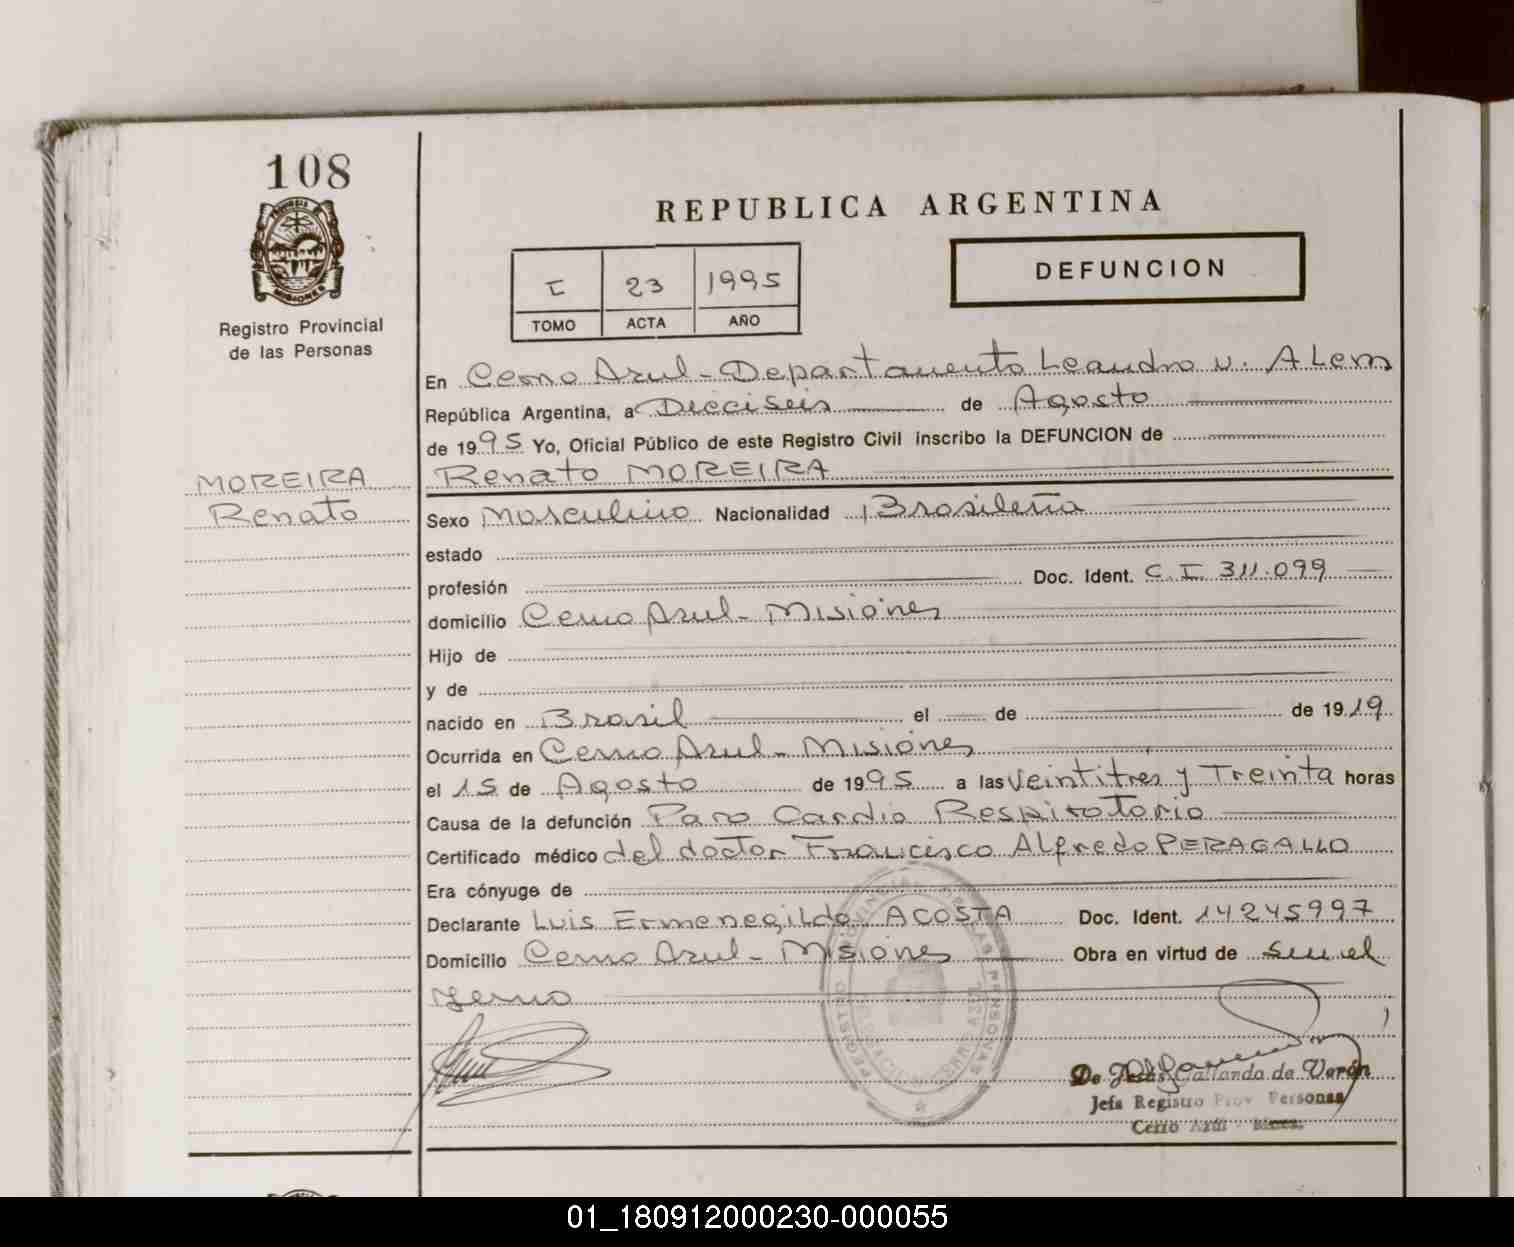 108
PROVINCIA DE
MISIONES
Registro Provincial
de las Personas
REPUBLICA ARGENTINA
DEFUNCION
I 23 1995
TOMO ACTA AÑO
En Cerro Azul - Departamento Leandro N. ALem
República Argentina, a Dieciseis de Agosto
de 1995 Yo, Oficial Público de este Registro Civil inscribo la DEFUNCION de
MOREIRA
Renato
Renato MOREIRA
Sexo Masculino Nacionalidad Brasileña
estado
profesión Doc. Ident. C.I. 311.099
domicilio Cerro Azul - Misiones
Hijo de
y de
nacido en Brasil el de de 1919
Ocurrida en Cerro Azul - Misiones
el 15 de Agosto de 1995 a las Veintitres y Treinta horas
Causa de la defunción Paro Cardio Respiratorio
Certificado médico del doctor Francisco Alfredo PERAGALLO
Era cónyuge de
Declarante Luis Ermenegildo ACOSTA Doc. Ident. 14245997
Domicilio Cerro Azul - Misiones Obra en virtud de ser el
Yerno
De Jesus Gallardo de Verón
Jefa Registro Prov Personas
Cerro Azul - Mnes.
01_180912000230-000055